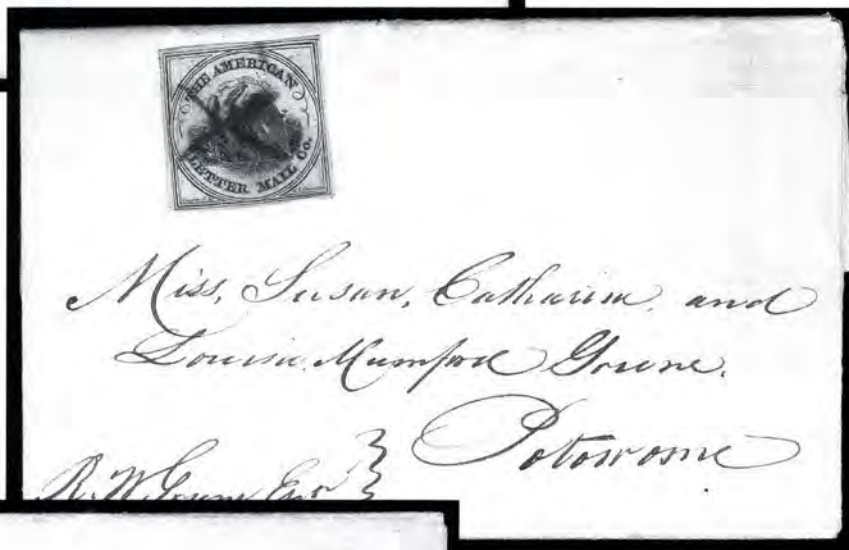 THE AMERICAN
LETTER MAIL Co.
Miss, Susan, Catharine, and
Louisa Mumford Greene.
Potowome
R. W. Greene Esqr